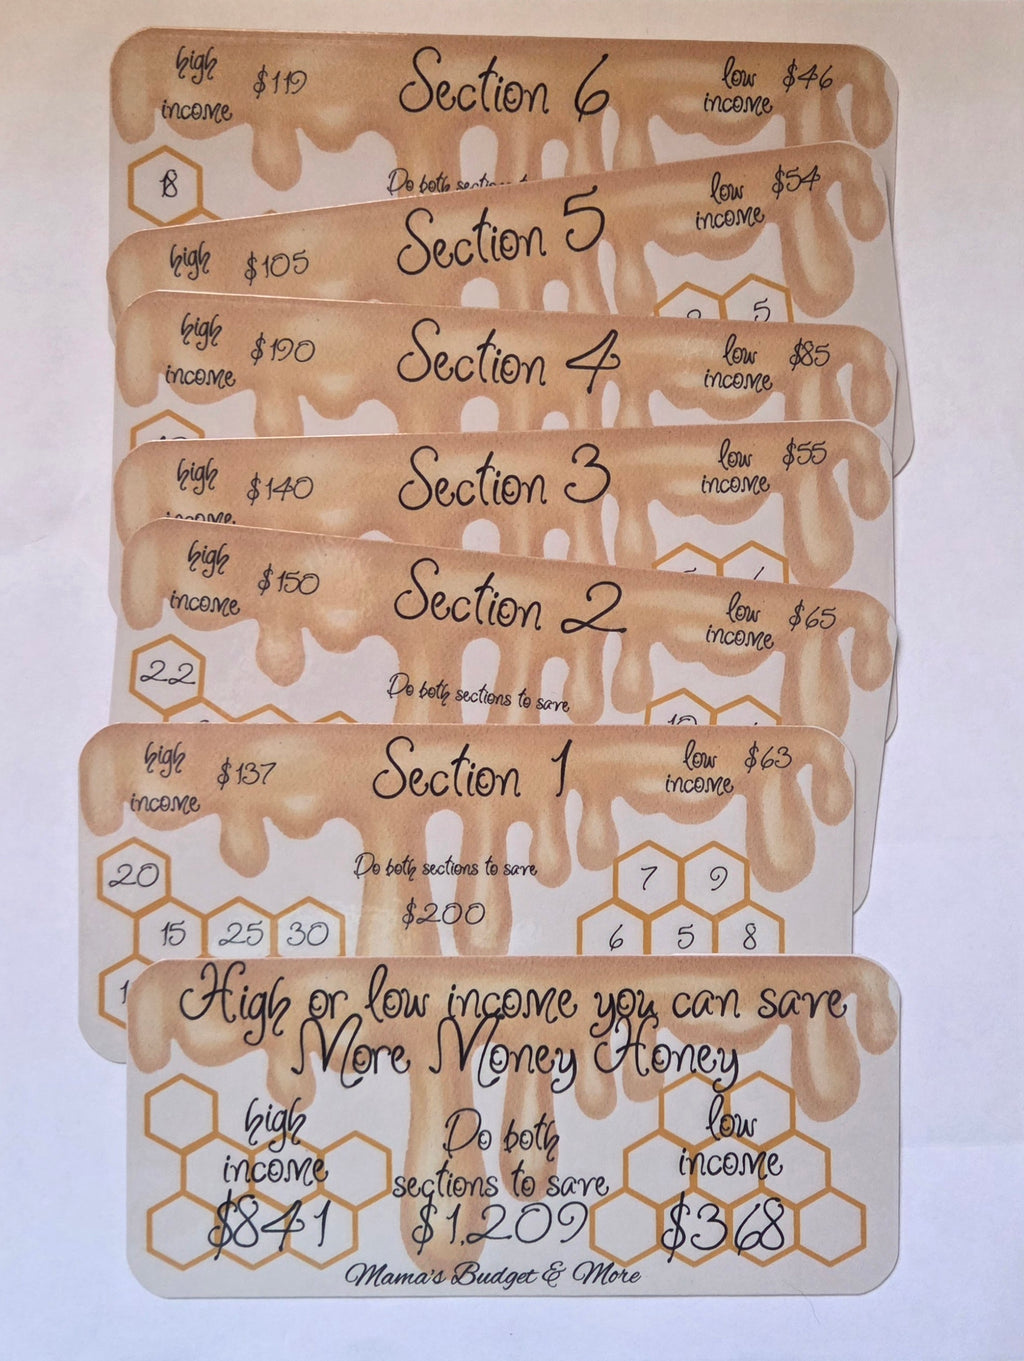 high income $119
Section 6
low income $46
18
Do both
high $105
Section 5
low income $54
5
high income $190
Section 4
low income $85
high $140
income
Section 3
low income $55
high income $150
Section 2
low income $65
22
Do both sections to save
high income $137
Section 1
low income $63
20
15 25 30
Do both sections to save
$200
7 9
6 5 8
High or low income you can save
More Money Honey
high
income
$841
Do both
sections to save
$1,209
low
income
$368
Mama's Budget & More